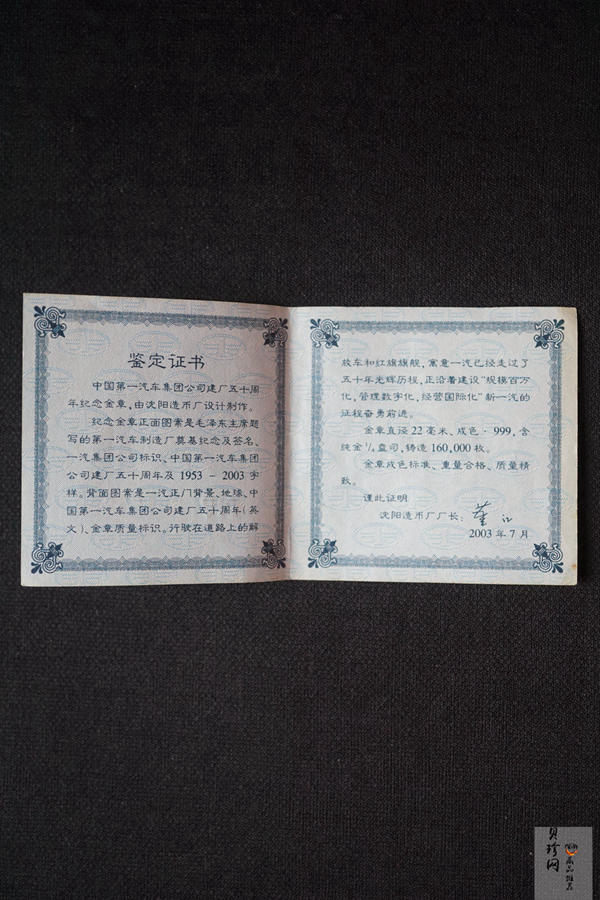 鉴定证书
中国第一汽车集团公司建厂五十周
年纪念金章,由沈阳造币厂设计制作。
纪念金章正面图案是毛泽东主席题
写的第一汽车制造厂奠基纪念及签名、
一汽集团公司标识、中国第一汽车集团
公司建厂五十周年及 1953 - 2003 字
样。背面图案是一汽正门背景、地球、中
国第一汽车集团公司建厂五十周年(英
文)、金章质量标识。行驶在道路上的解
放车和红旗旗舰,寓意一汽已经走过了
五十年光辉历程,正沿着建设“规模百万
化,管理数字化,经营国际化”新一汽的
征程奋勇前进。
金章直径 22 毫米、成色·999,含
纯金 1/4 盎司,铸造 160,000 枚。
金章成色标准、重量合格、质量精
致。
谨此证明
沈阳造币厂厂长:
2003 年 7 月
贝珍网